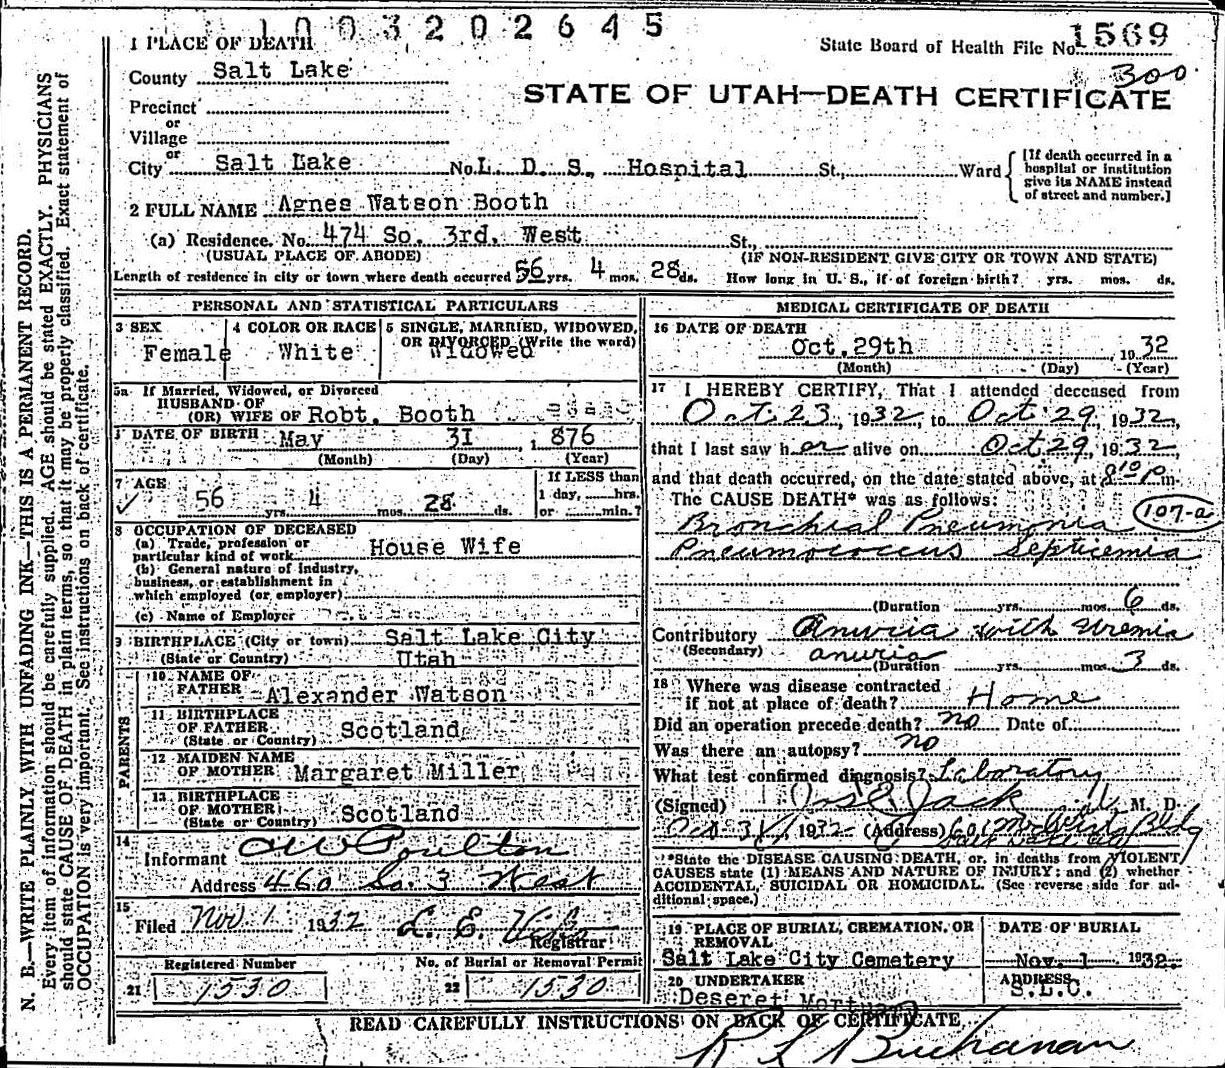 1003202645
State Board of Health File No. 1569
300
STATE OF UTAH—DEATH CERTIFICATE
1 PLACE OF DEATH
County Salt Lake
Precinct
or
Village
or
City Salt Lake No. L. D. S., Hospital St., Ward
[If death occurred in a
hospital or institution
give its NAME instead
of street and number.]
2 FULL NAME Agnes Watson Booth
(a) Residence. No. 474 So. 3rd. West St.,
(USUAL PLACE OF ABODE) (IF NON-RESIDENT GIVE CITY OR TOWN AND STATE)
Length of residence in city or town where death occurred 56 yrs. 4 mos. 28 ds. How long in U. S., if of foreign birth? yrs. mos. ds.
PERSONAL AND STATISTICAL PARTICULARS
3 SEX
Female
4 COLOR OR RACE
White
5 SINGLE, MARRIED, WIDOWED,
OR DIVORCED (Write the word)
Widowed
5a If Married, Widowed, or Divorced
HUSBAND OF
(OR) WIFE OF Robt. Booth
DATE OF BIRTH May 31, 1876
(Month) (Day) (Year)
7 AGE
56 yrs. 4 mos. 28 ds.
If LESS than
1 day, hrs.
or min.?
8 OCCUPATION OF DECEASED
(a) Trade, profession or
particular kind of work House Wife
(b) General nature of industry,
business, or establishment in
which employed (or employer)
(c) Name of Employer
9 BIRTHPLACE (City or town) Salt Lake City
(State or Country) Utah
PARENTS
10 NAME OF
FATHER Alexander Watson
11 BIRTHPLACE
OF FATHER
(State or Country) Scotland
12 MAIDEN NAME
OF MOTHER Margaret Miller
13 BIRTHPLACE
OF MOTHER
(State or Country) Scotland
14
Informant A W Poulton
Address 460 So. 3 West
15
Filed Nov. 1 1932 L. E.
Registrar
Registered Number
21 1530
No. of Burial or Removal Permit
22 1530
MEDICAL CERTIFICATE OF DEATH
16 DATE OF DEATH
Oct. 29th, 1932
(Month) (Day) (Year)
17 I HEREBY CERTIFY, That I attended deceased from
Oct. 23, 1932, to Oct. 29, 1932,
that I last saw her alive on Oct 29, 1932,
and that death occurred, on the date stated above, at 810 P m.
The CAUSE DEATH* was as follows:
107-a
Bronchial Pneumonia
Pneumococcus Septicemia
(Duration yrs. mos. 6 ds.
Contributory Anuria with Uremia
(Secondary) anuria
(Duration yrs. mos. 3 ds.
18 Where was disease contracted
if not at place of death? Home
Did an operation precede death? no Date of
Was there an autopsy? no
What test confirmed diagnosis? Laboratory
(Signed) Jos E. Jack M. D.
Oct. 31, 1932 (Address) 601 Bldg
*State the DISEASE CAUSING DEATH, or, in deaths from VIOLENT
CAUSES state (1) MEANS AND NATURE OF INJURY; and (2) whether
ACCIDENTAL, SUICIDAL OR HOMICIDAL. (See reverse side for ad-
ditional space.)
19 PLACE OF BURIAL, CREMATION, OR
REMOVAL
Salt Lake City Cemetery
DATE OF BURIAL
Nov. 1 1932.
20 UNDERTAKER
Deseret
ADDRESS
S.L.C.
READ CAREFULLY INSTRUCTIONS ON BACK OF CERTIFICATE
Buchanan
N. B.—WRITE PLAINLY, WITH UNFADING INK—THIS IS A PERMANENT RECORD.
Every item of information should be carefully supplied. AGE should be stated EXACTLY. PHYSICIANS
should state CAUSE OF DEATH in plain terms, so that it may be properly classified. Exact statement of
OCCUPATION is very important. See instructions on back of certificate.